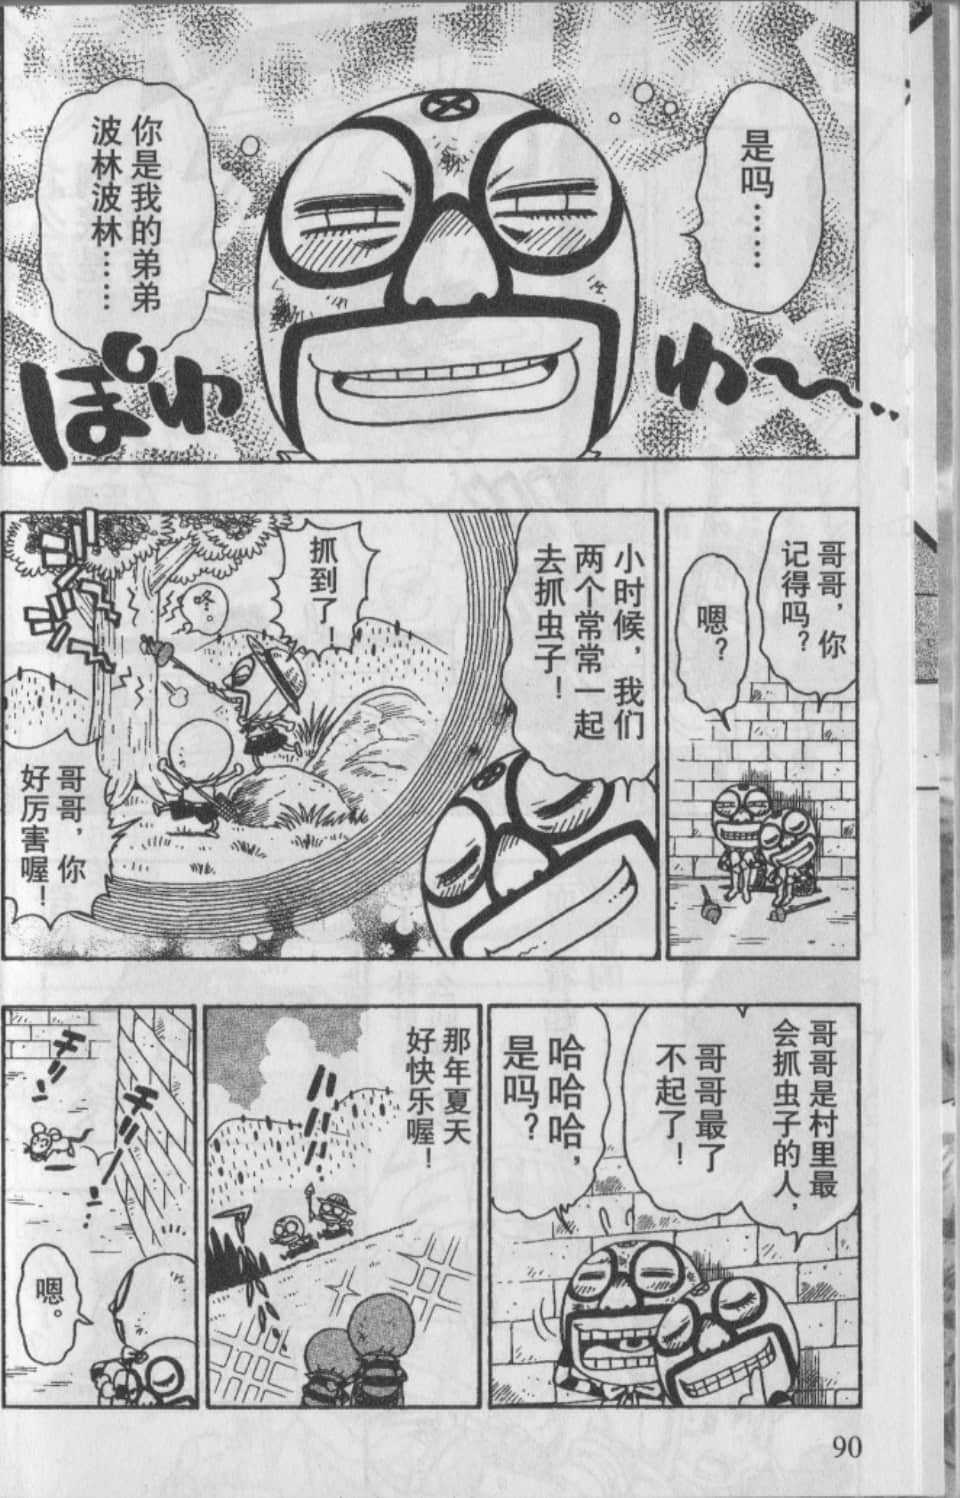 是吗……
你是我的弟弟
波林波林……
ぽわわ～…
哥哥，你
记得吗？
嗯？
小时候，我们
两个常常一起
去抓虫子！
抓到了！
咚。
哥哥，你
好厉害喔！
哥哥是村里最
会抓虫子的人，
哥哥最了
不起了！
哈哈哈，
是吗？
那年夏天
好快乐喔！
チーッ
チーッ
嗯。
90